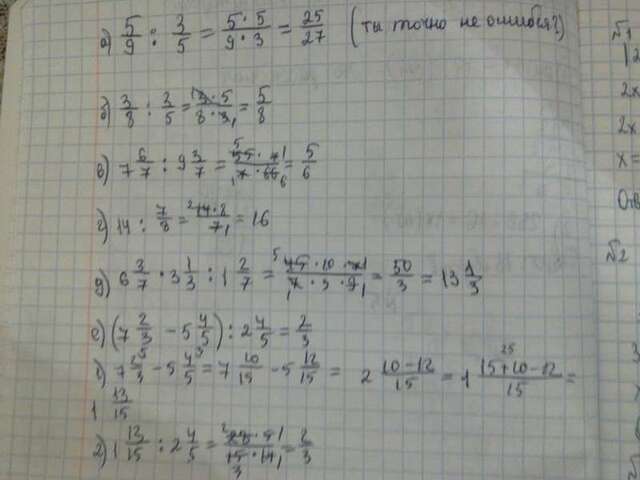 а) 5/9 : 3/5 = 5·5/9·3 = 25/27 (ты точно не ошибся?)
б) 3/8 : 3/5 = 3·5/8·3 = 5/8
в) 7 6/7 : 9 3/7 = 55·7/7·66 = 5/6
г) 14 : 7/8 = 14·8/7 = 16
д) 6 3/7 · 3 1/3 : 1 2/7 = 45·10·7/7·3·9 = 50/3 = 13 1/3
е) (7 2/3 − 5 4/5) : 2 4/5 = 2/3
1) 7 2/3 − 5 4/5 = 7 10/15 − 5 12/15 = 2 10−12/15 = 1 15+10−12/15 =
1 13/15
2) 1 13/15 : 2 4/5 = 28·5/15·14 = 2/3
№1
2x
2x
x=
Отв
№2